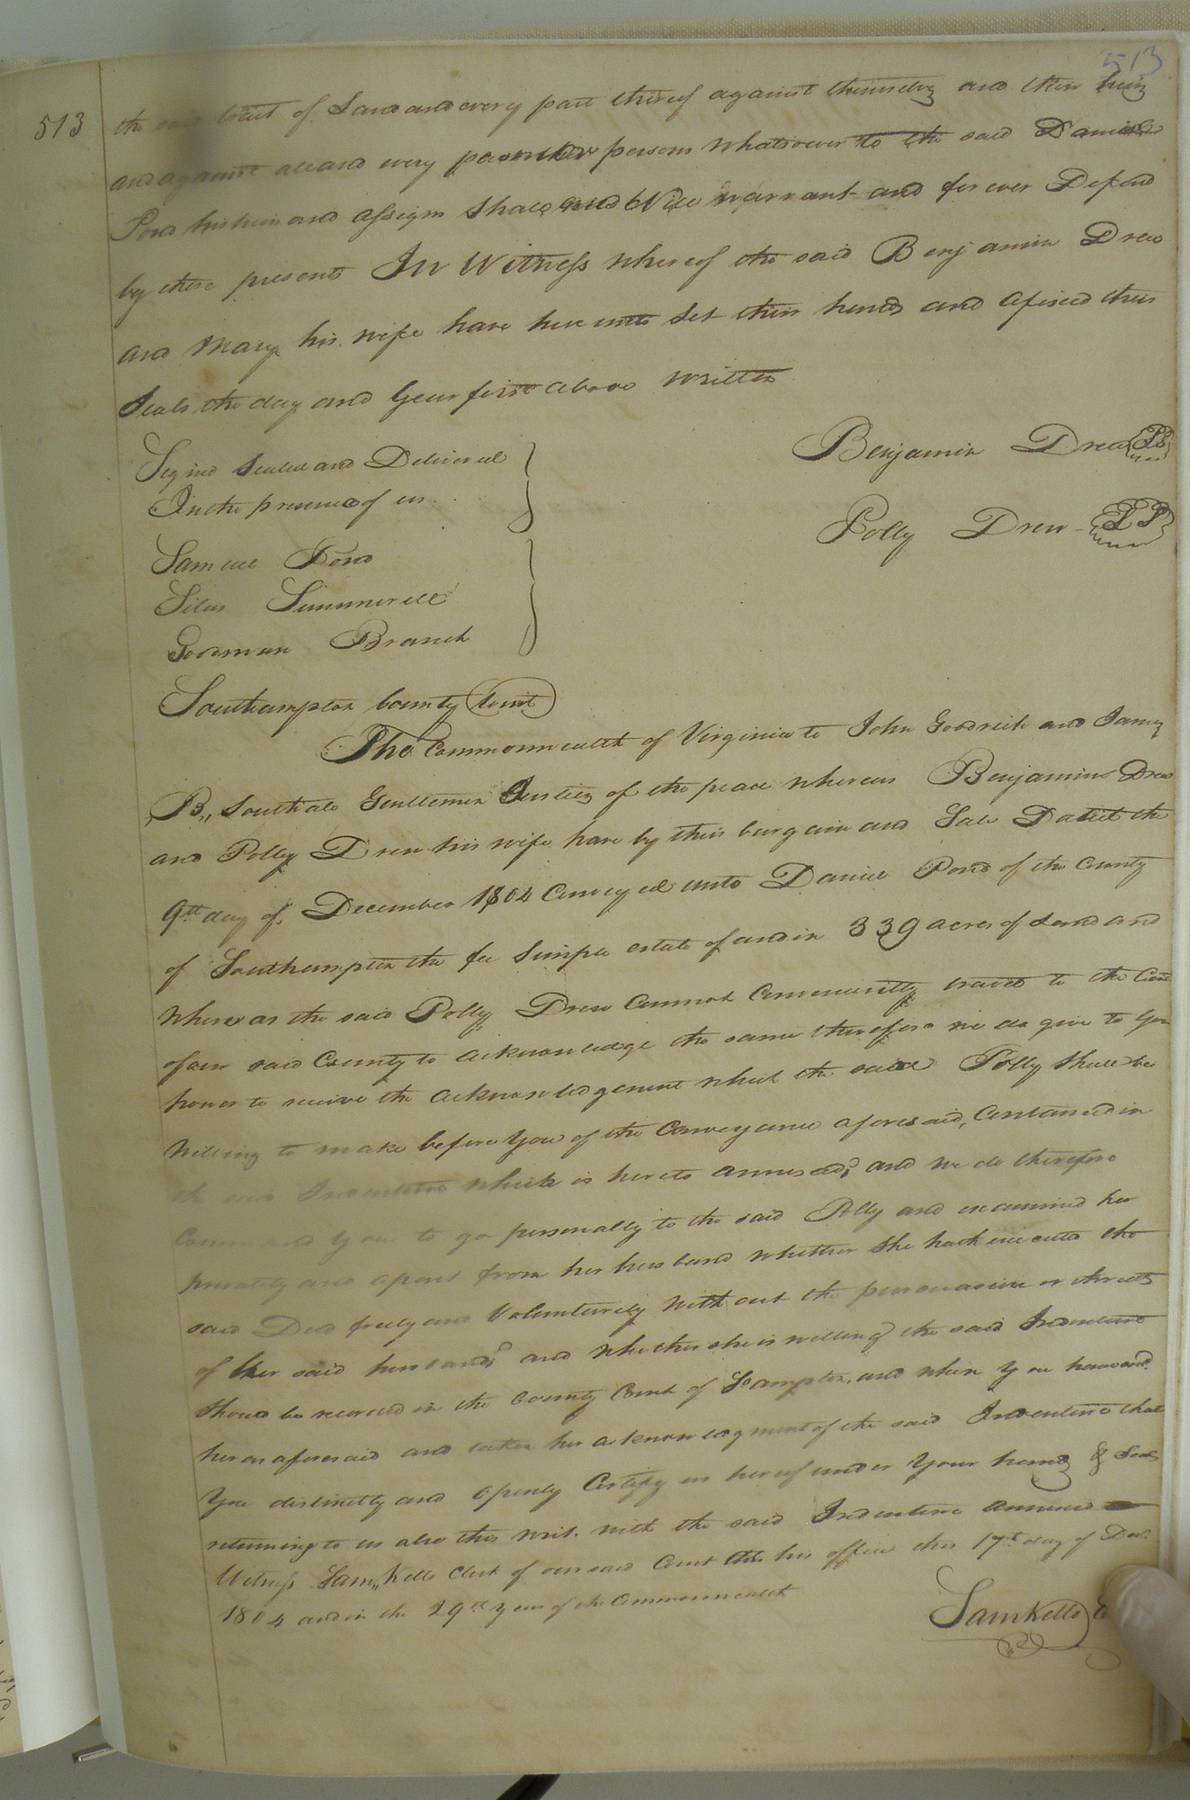 513
513
the said tract of Land and every part thereof against themselves and their heirs
and against all and every person other persons whatsoever to the said Daniel
Pond his heirs and assigns shall and Will warrant and for ever Defend
by these presents In Witness whereof the said Benjamin Drew
and Mary his wife have here unto set their hands and afixed their
Seals the day and year first above written
Benjamin Drew LS
Signed Sealed and Delivered
In the presence of us
Polly Drew LS
Samuel Pond
Silas Summerell
Goodman Branch
Southampton County towit
The Commonwealth of Virginia to John Goodrich and James
B,, Southall Gentlemen Justices of the peace whereas Benjamin Drew
and Polly Drew his wife have by their bargain and Sale Dated the
9th day of December 1804 Conveyed unto Daniel Pond of the County
of Southampton the fee Simple estate of and in 339 acres of Land and
Where as the said Polly Drew Cannot Conveniently travel to the Court
of our said County to acknowledge the same therefore we do give to you
power to receive the acknowledgement which the said Polly shall be
willing to make before you of the Conveyance aforesaid, Contained in
the said Indenture which is hereto annexed, and we do therefore
Command you to go personally to the said Polly and examined her
privately and apart from her husband whether she hath executed the
said Deed freely and Voluntarily with out the persuasion or threats
of her said husband, and whether she is willing the said Indenture
should be recorded in the County Court of So,ampton, and when you have
her as aforesaid and taken her acknowlegment of the said Indenture that
you distinctly and openly Certify us hereof under your hands & Seals
returning to us also this writ. with the said Indenture annexed
Witness Sam,, Kello Clerk of our said Court this his office this 17th day of Decr.
1804 and in the 29th year of the Commonwealth
Sam Kello